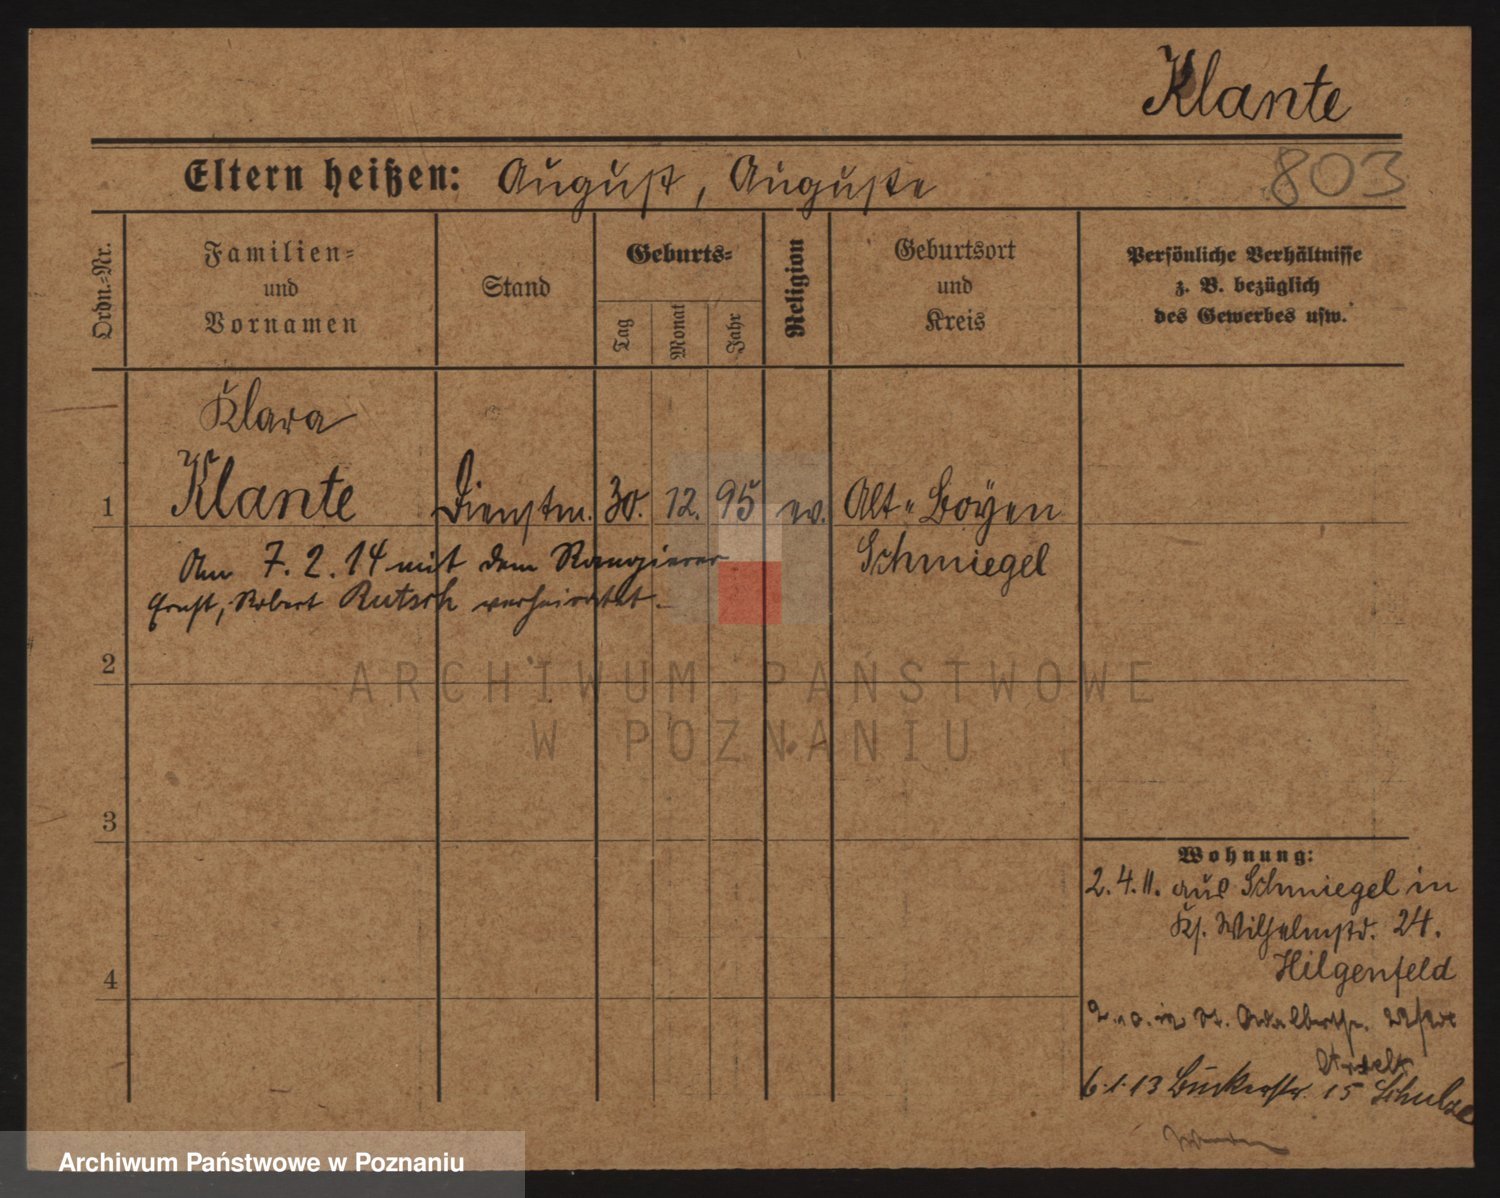 Klante
Eltern heißen: August, Auguste
803
Ordn.-Nr.
Familien-
und
Vornamen
Stand
Geburts-
Tag
Monat
Jahr
Religion
Geburtsort
und
Kreis
Persönliche Verhältnisse
z. B. bezüglich
des Gewerbes usw.
Klara
1 Klante Dienstm. 30. 12. 95 ev. Alt-Boyen
Schmiegel
Am 7. 2. 14 mit dem Rangierer
Ernst, Robert Rutsch verheiratet.
2
3
4
Wohnung:
2. 4. 11. aus Schmiegel in
Ks. Wilhelmstr. 24.
Hilgenfeld
St. Adalbertstr.
6. 1. 13 Bückerstr. 15 Schulze
ARCHIWUM PAŃSTWOWE
W POZNANIU
Archiwum Państwowe w Poznaniu